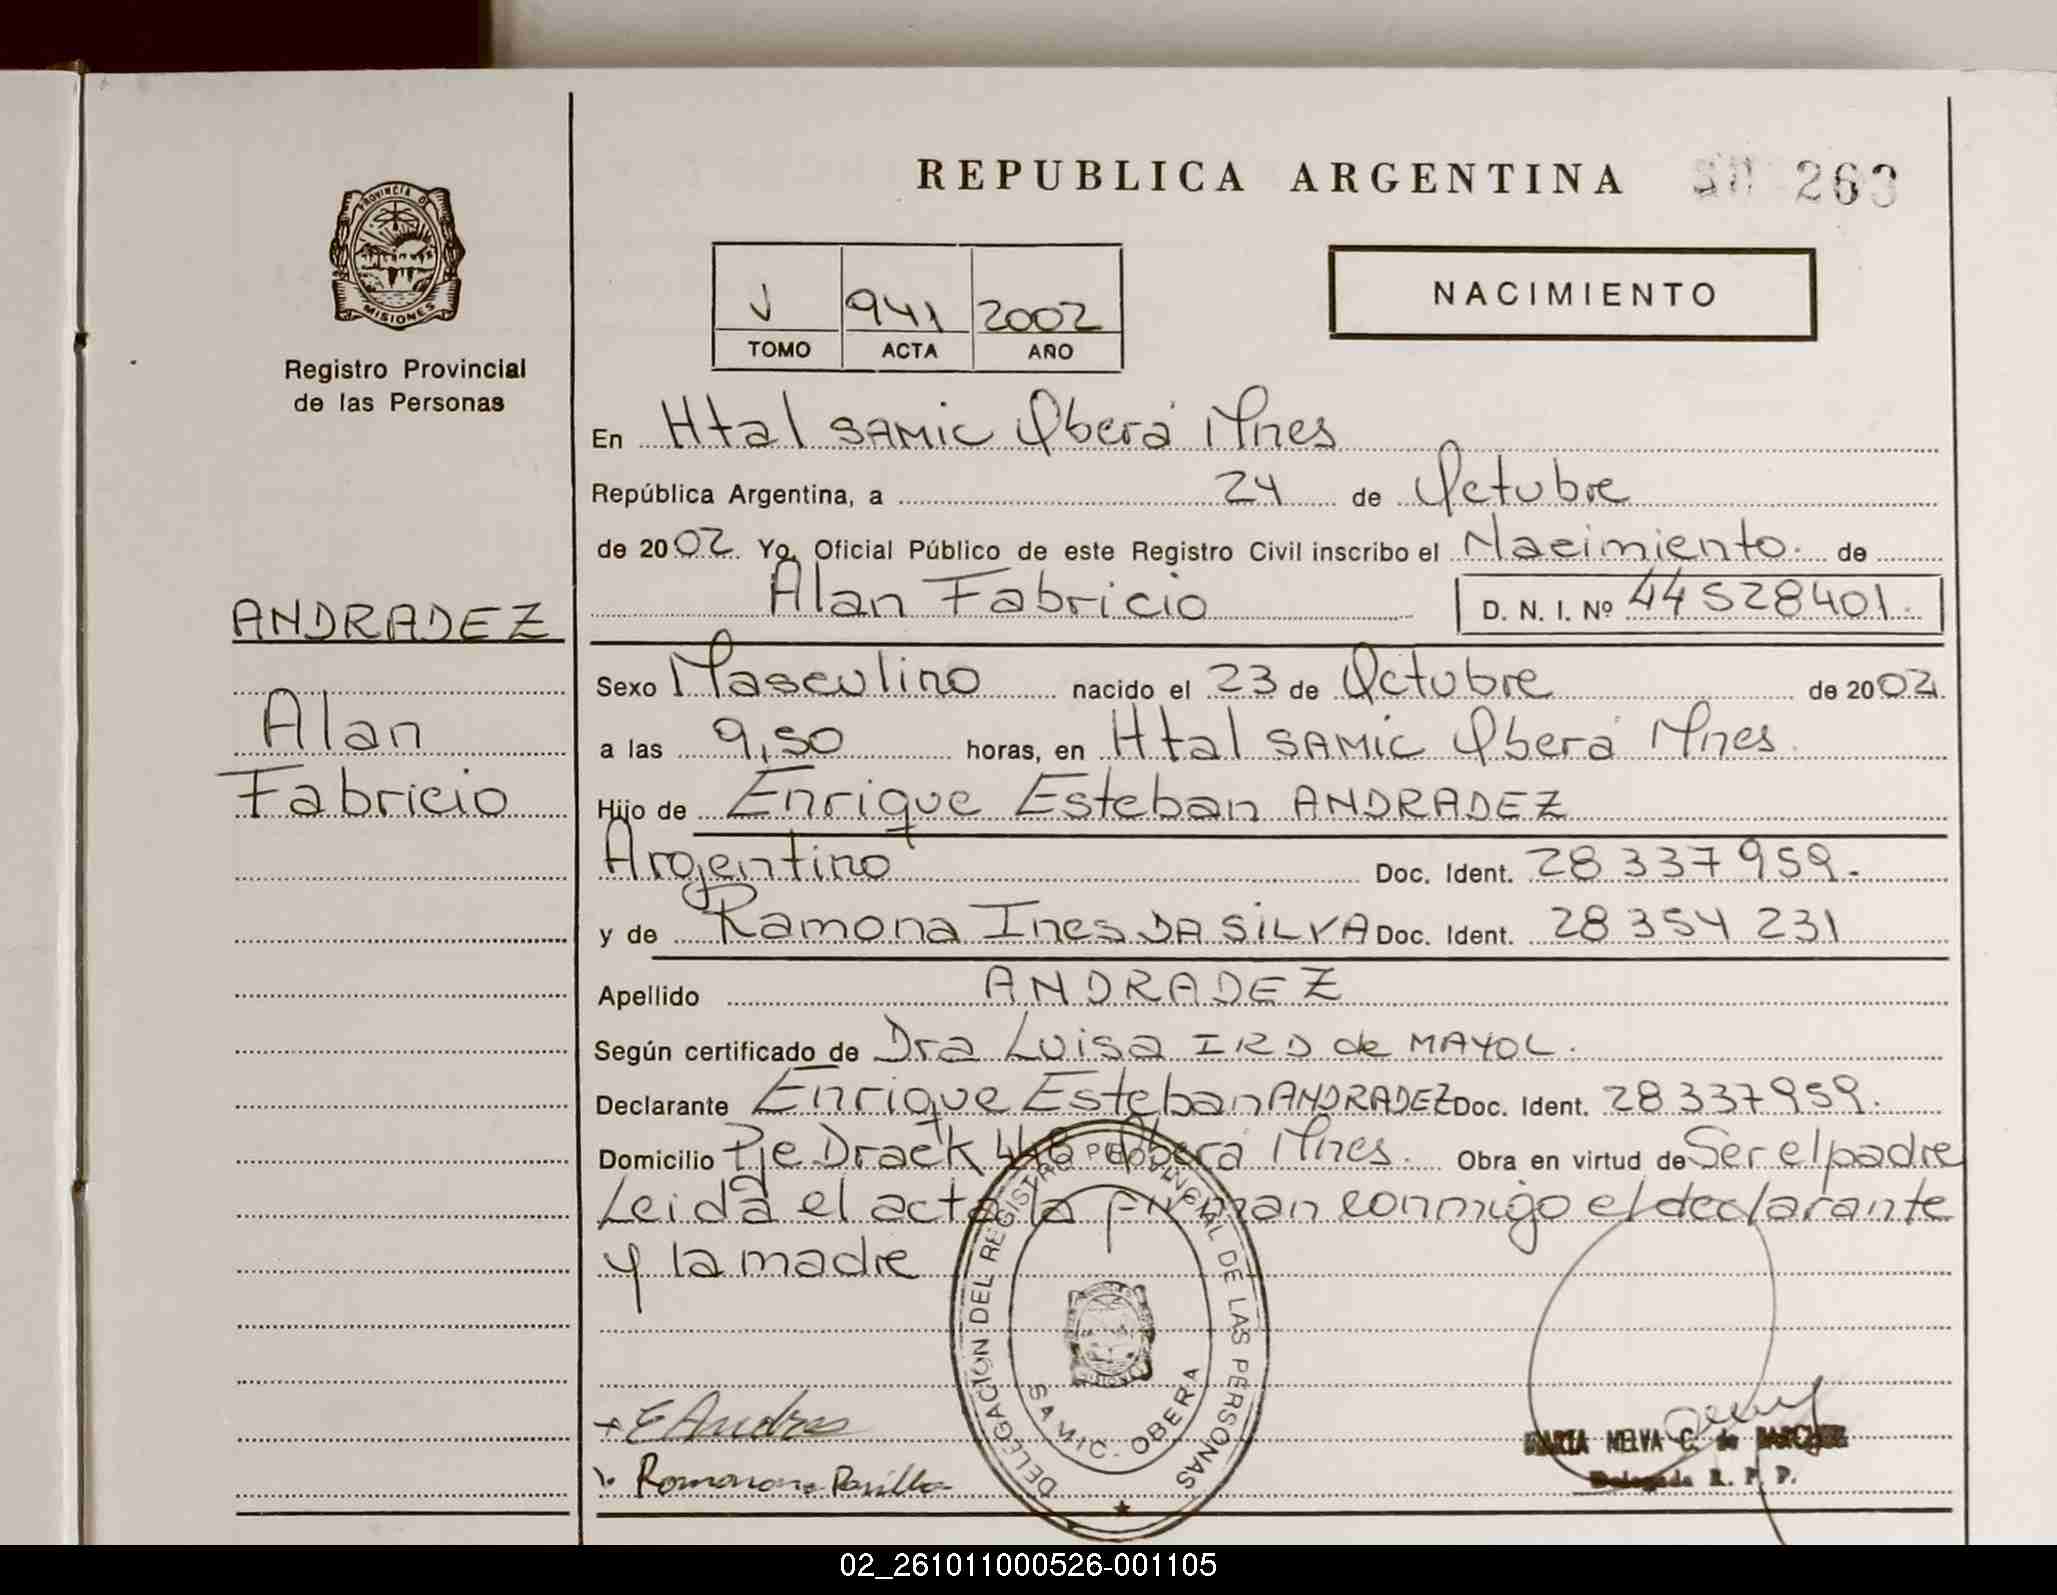 REPUBLICA ARGENTINA 263
PROVINCIA DE
MISIONES
Registro Provincial
de las Personas
J 941 2002
TOMO ACTA AÑO
NACIMIENTO
En Htal SAMIC Oberá Mnes
República Argentina, a 24 de Octubre
de 2002. Yo, Oficial Público de este Registro Civil inscribo el Nacimiento. de
Alan Fabricio D. N. I. Nº 44528401.
ANDRADEZ
Alan
Fabricio
Sexo Masculino nacido el 23 de Octubre de 2002.
a las 9,50 horas, en Htal SAMIC Oberá Mnes.
Hijo de Enrique Esteban ANDRADEZ
Argentino Doc. Ident. 28 337 959.
y de Ramona Ines DA SILVA Doc. Ident. 28 354 231
Apellido ANDRADEZ
Según certificado de Dra Luisa IRD de MAYOL.
Declarante Enrique Esteban ANDRADEZ Doc. Ident. 28 337 959.
Domicilio Pje Draek 448 Oberá Mnes. Obra en virtud de Ser el padre
Leida el acta la firman conmigo el declarante
y la madre
DELEGACIÓN DEL REGISTRO PROVINCIAL DE LAS PERSONAS
SAMIC. OBERA
MARIA MELVA C. de
Delegada R. P. P.
02_261011000526-001105